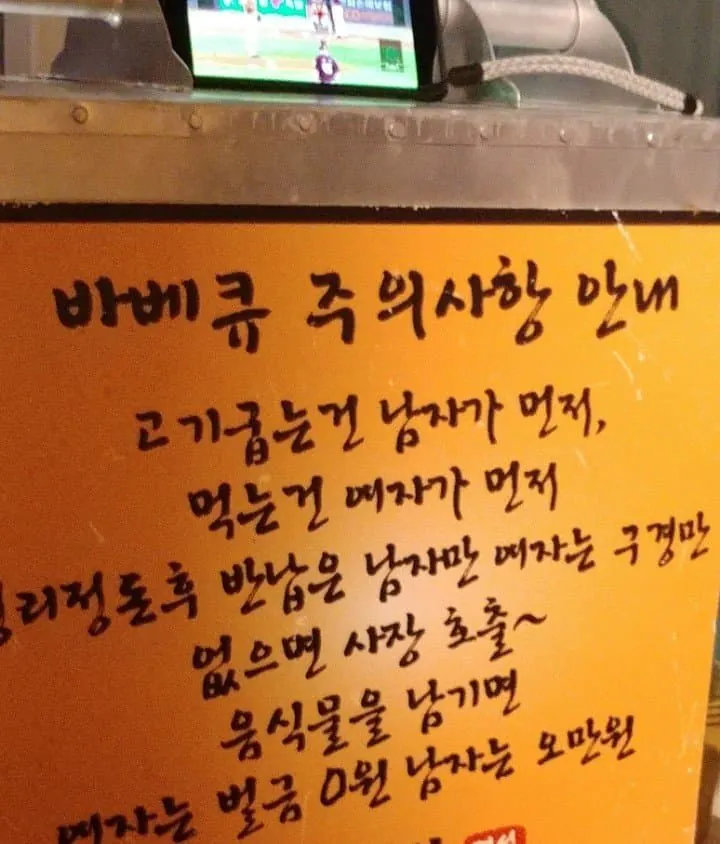 바베큐 주의사항 안내
고기굽는건 남자가 먼저,
먹는건 여자가 먼저
정리정돈후 반납은 남자만 여자는 구경만
없으면 사장 호출~
음식물을 남기면
여자는 벌금 0원 남자는 오만원